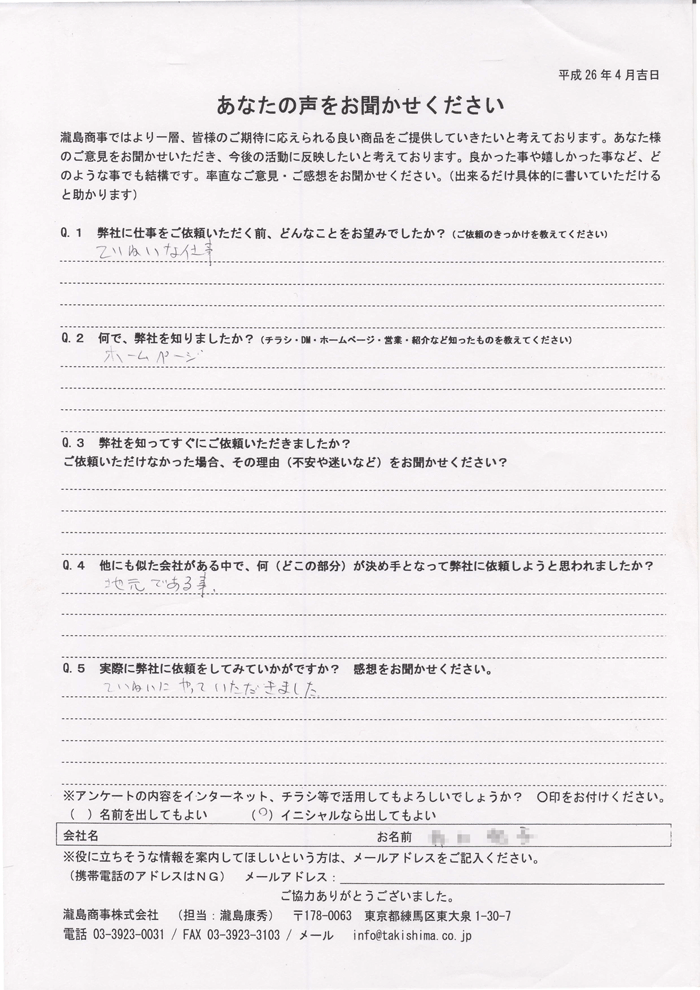 平成26年4月吉日
あなたの声をお聞かせください
瀧島商事ではより一層、皆様のご期待に応えられる良い商品をご提供していきたいと考えております。あなた様
のご意見をお聞かせいただき、今後の活動に反映したいと考えております。良かった事や嬉しかった事など、ど
のような事でも結構です。率直なご意見・ご感想をお聞かせください。(出来るだけ具体的に書いていただける
と助かります)
Q.1 弊社に仕事をご依頼いただく前、どんなことをお望みでしたか?(ご依頼のきっかけを教えてください)
ていねいな仕事
Q.2 何で、弊社を知りましたか?(チラシ・DM・ホームページ・営業・紹介など知ったものを教えてください)
ホームページ
Q.3 弊社を知ってすぐにご依頼いただきましたか?
ご依頼いただけなかった場合、その理由(不安や迷いなど)をお聞かせください?
Q.4 他にも似た会社がある中で、何(どこの部分)が決め手となって弊社に依頼しようと思われましたか?
地元である事.
Q.5 実際に弊社に依頼をしてみていかがですか? 感想をお聞かせください。
ていねいにやっていただきました
※アンケートの内容をインターネット、チラシ等で活用してもよろしいでしょうか? ○印をお付けください。
( )名前を出してもよい (○)イニシャルなら出してもよい
会社名 お名前
※役に立ちそうな情報を案内してほしいという方は、メールアドレスをご記入ください。
(携帯電話のアドレスはNG) メールアドレス:
ご協力ありがとうございました。
瀧島商事株式会社 (担当:瀧島康秀) 〒178-0063 東京都練馬区東大泉1-30-7
電話 03-3923-0031 / FAX 03-3923-3103 / メール info@takishima.co.jp